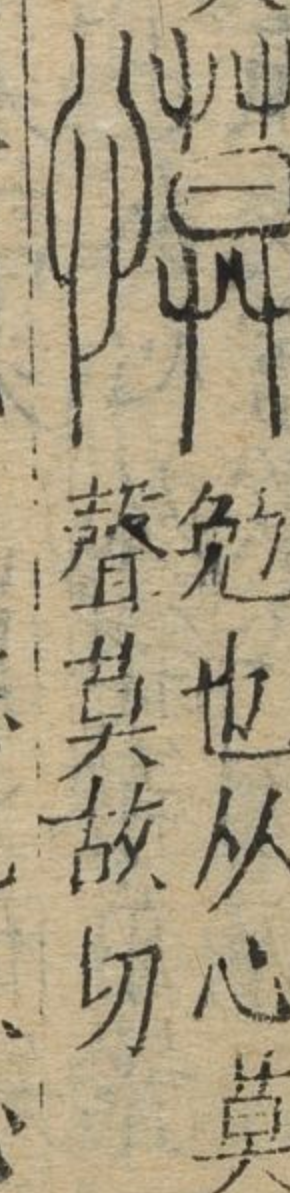 慔
勉也从心莫
聲莫故切